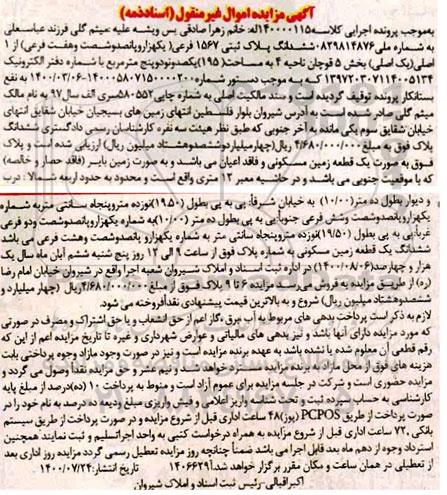 آگهی مزایده اموال غیر منقول (اسناد ذمه)
بموجب پرونده اجرایی کلاسه ۱۴۰۰۰۰۱۱۵ له: خانم زهرا صادقی پس ویشه علیه میثم گلی فرزند عباسعلی
به شماره ملی ۰۸۲۹۸۱۴۸۷۶ ششدانگ پلاک ثبتی ۱۵۶۷ فرعی( یکهزاروپانصدوشصت وهفت فرعی) از ۱
اصلی(یک اصلی) بخش ۵ قوچان ناحیه ۴ به مساحت( ۱۹۵)یکصدونودوپنج مترمربع با شماره دفتر الکترونیک
۱۳۹۷۲۰۳۰۷۱۱۴۰۰۵۱۳۴ که به موجب دستور شماره ۱۴۰۰۰۵۸۰۷۱۵۰۰۰۲۰۰-۱۴۰۰/۰۳/۰۶ به نفع
بستانکار پرونده توقیف گردیده است و سند مالکیت اصلی به شماره چاپی ۵۸۰۵۵۲سری الف سال۹۷ به نام مالک
میثم گلی صادر شده است به آدرس شیروان بلوار فلسطین انتهای زمین های بسیجیان خیابان شقایق انتهای
خیابان شقایق سوم یکی مانده به آخر جنوبی که طبق نظر هیئت سه نفره کارشناسان رسمی دادگستری ششدانگ
پلاک فوق به مبلغ ۴/۶۸۰/۰۰۰/۰۰۰ریال(چهارمیلیاردوششصدوهشتاد میلیون ریال) ارزیابی شده است و پلاک
فوق به صورت یک قطعه زمین مسکونی و فاقد اعیان می باشد و به صورت زمین بایر (فاقد حصار و خالصه)
که با موقعیت جنوبی می باشد و در حاشیه معبر ۱۲ متری واقع است و محدود به حدود اربعه شمالا: درب
و دیوار بطول ده متر(۱۰/۰۰) به خیابان شرقاً: پی به پی بطول (۱۹/۵۰)نوزده متروپنجاه سانتی متربه شماره
یکهزاروپانصدوشصت وشش فرعی جنوباًپی به پی بطول ده متر (۱۰/۰۰)به شماره یکهزاروپانصدوشصت ودو فرعی
غرباًپی به پی بطول (۱۹/۵۰)نوزده متروپنجاه سانتی متر به شماره یکهزارو پانصدوشصت وهشت فرعی می باشد
ششدانگ یک قطعه زمین مسکونی به شماره پلاک فوق از ساعت ۹ الی ۱۲ روز پنج شنبه ششم آبان ماه سال یک
هزار و چهارصد(۱۴۰۰/۰۸/۰۶) در اداره ثبت اسناد و املاک شیروان شعبه اجرا واقع در شیروان خیابان امام رضا
(ره) از طریق مزایده به فروش می‌رسد مزایده ۶ تا ۹ پلاک فوق از مبلغ ۴/۶۸۰/۰۰۰/۰۰۰ریال (چهار میلیارد و
ششصدوهشتاد میلیون ریال) شروع و به بالاترین قیمت پیشنهادی نقداًفروخته می شود.
لازم به ذکر است پرداخت بدهی های مربوط به آب ،برق ،گاز اعم از حق انشعاب و یا حق اشتراک و مصرف در صورتی
که مورد مزایده دارای آنها باشد و نیز بدهی های مالیاتی و عوارض شهرداری و غیره تا تاریخ مزایده اعم از این که
رقم قطعی آن معلوم شده یا نشده باشد به عهده برنده مزایده است و نیز در صورت وجود مازاد وجوه پرداختی بابت
هزینه های فوق از محل مازاد به برنده مزایده مسترد خواهد شد و نیم عشر و حق مزایده نقداً وصول می گردد و
مزایده حضوری است و شرکت در جلسه مزایده برای عموم آزاد است و منوط به پرداخت ۱۰ (ده)درصد از مبلغ پایه
کارشناسی به حساب سپرده ثبت و تحت شناسه واریز اعلامی و فیش واریزی مبلغ ودیعه ده درصد به نام خود را در
صورت پرداخت از طریق PCPOS (پوز)۴۸ ساعت اداری قبل از شروع مزایده و در صورت پرداخت از طریق سیستم
بانکی ،۷۲ ساعت اداری قبل از شروع مزایده به همراه درخواست کتبی به واحد اجرا تسلیم و ثبت نمایند همچنین
استرداد وجوه از دهم ماه بعد قابل اجرا می باشد ضمناً چنانچه روز مزایده تعطیل رسمی گردد مزایده روز اداری بعد
از تعطیلی در همان ساعت و مکان مقرر برگزار خواهد شد/۱۴۰۶۶۲۹ تاریخ انتشار:۱۴۰۰/۰۷/۲۴
اکبر اقبالی-رئیس ثبت اسناد و املاک شیروان